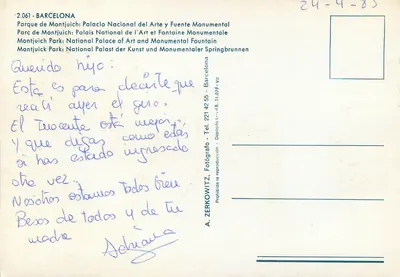 24-4-85
2.061 - BARCELONA
Parque de Montjuich: Palacio Nacional del Arte y Fuente Monumental
Parc de Montjuich: Palais National de l'Art et Fontaine Monumentale
Montjuich Park: National Palace of Art and Monumental Fountain
Montjuich Park: National Palast der Kunst und Monumentaler Springbrunnen
Querido hijo:
Esta es para decirte que
recibí ayer el giro.
El Inocente está mejor,
y que digas como estás
si has estado ingresado
otra vez.
Nosotros estamos todos bien
Besos de todos y de tu
madre
Adriana
A. ZERKOWITZ, Fotógrafo - Tel. 221 42 55 - Barcelona
Prohibida la reproducción